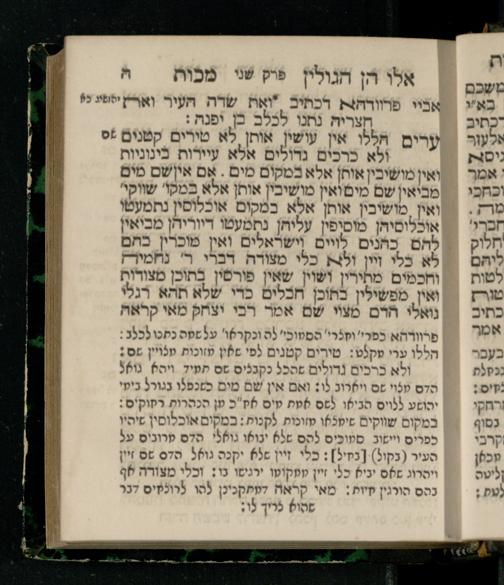 אלו הן הגולין פרק שני מכות ה
אביי פרוודהא דכתיב *ואת שדה העיר ואת יהושע כא
חצריה נתנו לכלב בן יפנה:
ערים הללו אין עושין אותן לא טירים קטנים שם
ולא כרכים גדולים אלא עיירות בינוניות
ואין מושיבין אותן אלא במקום מים. אם אין שם מים
מביאין שם מים ואין מושיבין אותן אלא במקו' שווקי'
ואין מושיבין אותן אלא במקום אוכלוסין נתמעטו
אוכלוסיהן מוסיפין עליהן נתמעטו דיוריהן מביאין
להם כהנים לויים וישראלים ואין מוכרין בהם
לא כלי זיין ולא כלי מצודה דברי ר' נחמיה
וחכמים מתירין ושוין שאין פורסין בתוכן מצודות
ואין מפשילין בתוכן חבלים כדי שלא תהא רגלי
גואלי הדם מצוי שם אמר רבי יצחק מאי קראה
פרוודהא כפרי' וחצרי' הסמוכי' לה ונקראו' על שמה נתנו לכלב:
הללו ערי מקלט: טירים קטנים לפי שאין מזונות מצויין שם:
ולא כרכים גדולים שהכל נקבצים שם תמיד ויהא גואל
הדם מצוי שם ויארוב לו: ואם אין שם מים כשנפלו בגורל בימי
יהושע ללוים הביאו לשם אמת מים אח"כ מן הנהרות רחוקים:
במקום שווקים שימצאו מזונות לקנות: במקום אוכלוסין שיהיו
כפרים ויישוב סמוכים להם שלא יבואו גואלי הדם מרובים על
העיר (בקול) [בחיל]: כלי זיין שלא יקנה גואל הדם שם זיין
ויהרוג שאם יביא כלי זיין ממקומו ירגישו בו: וכלי מצודה אף
בהם הורגין חיות: מאי קראה דמתקנינן להו לרוצחים דבר
שהוא צריך לו: